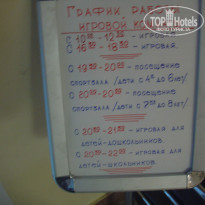 ГРАФИК РАБО
ИГРОВОЙ К
С 10 00 - 12 00 - ИГРОВАЯ
С 16 00 - 18 00 - ИГРОВАЯ.
С 19 00 - 20 00 - ПОСЕЩЕНИЕ
СПОРТЗАЛА /ДЕТИ С 4 Х ДО 6 ЛЕТ/
С 20 00 - ПОСЕЩЕНИЕ
СПОРТЗАЛА /ДЕТИ С ДО ЛЕТ/
С 20 00 - 21 00 - ИГРОВАЯ ДЛЯ
ДЕТЕЙ-ДОШКОЛЬНИКОВ.
С 20 00 - 22 00 - ИГРОВАЯ ДЛЯ
ДЕТЕЙ-ШКОЛЬНИКОВ.
TopHotels